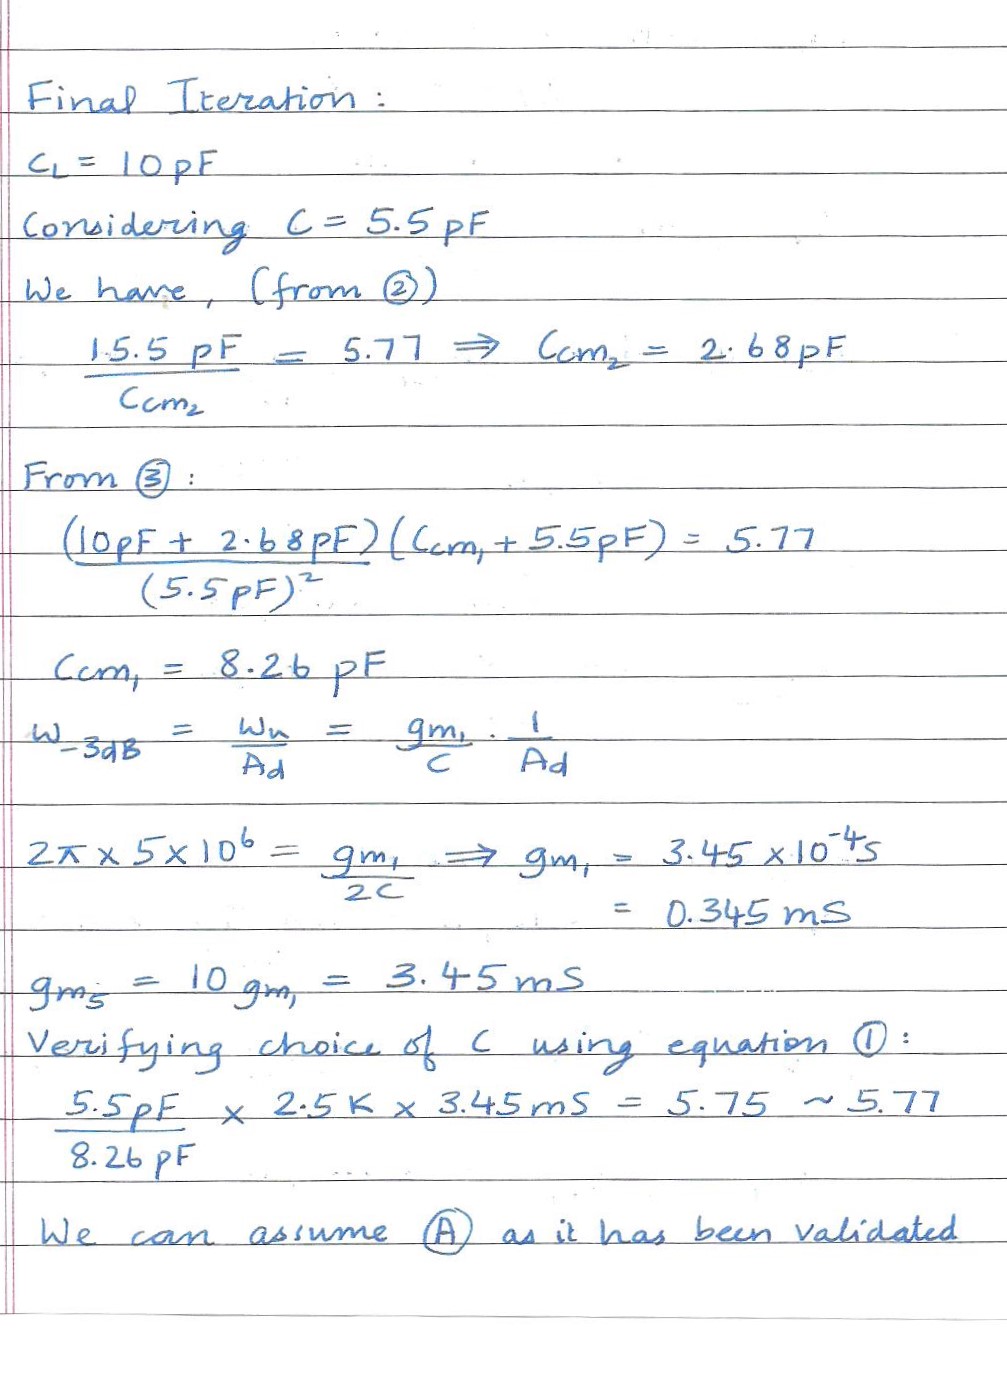 Final Iteration :
CL = 10 pF
Considering C = 5.5 pF
We have, (from ②)
15.5 pF / Ccm₂ = 5.77 ⇒ Ccm₂ = 2.68 pF
From ③ :
(10pF + 2.68pF)(Ccm₁ + 5.5pF) / (5.5pF)² = 5.77
Ccm₁ = 8.26 pF
W₋₃dB = Wu / Ad = gm₁ / C . 1 / Ad
2π x 5 x 10⁶ = gm₁ / 2C ⇒ gm₁ = 3.45 x 10⁻⁴ S
= 0.345 mS
gm₅ = 10 gm₁ = 3.45 mS
Verifying choice of C using equation ① :
5.5pF / 8.26 pF x 2.5K x 3.45mS = 5.75 ~ 5.77
We can assume Ⓐ as it has been validated